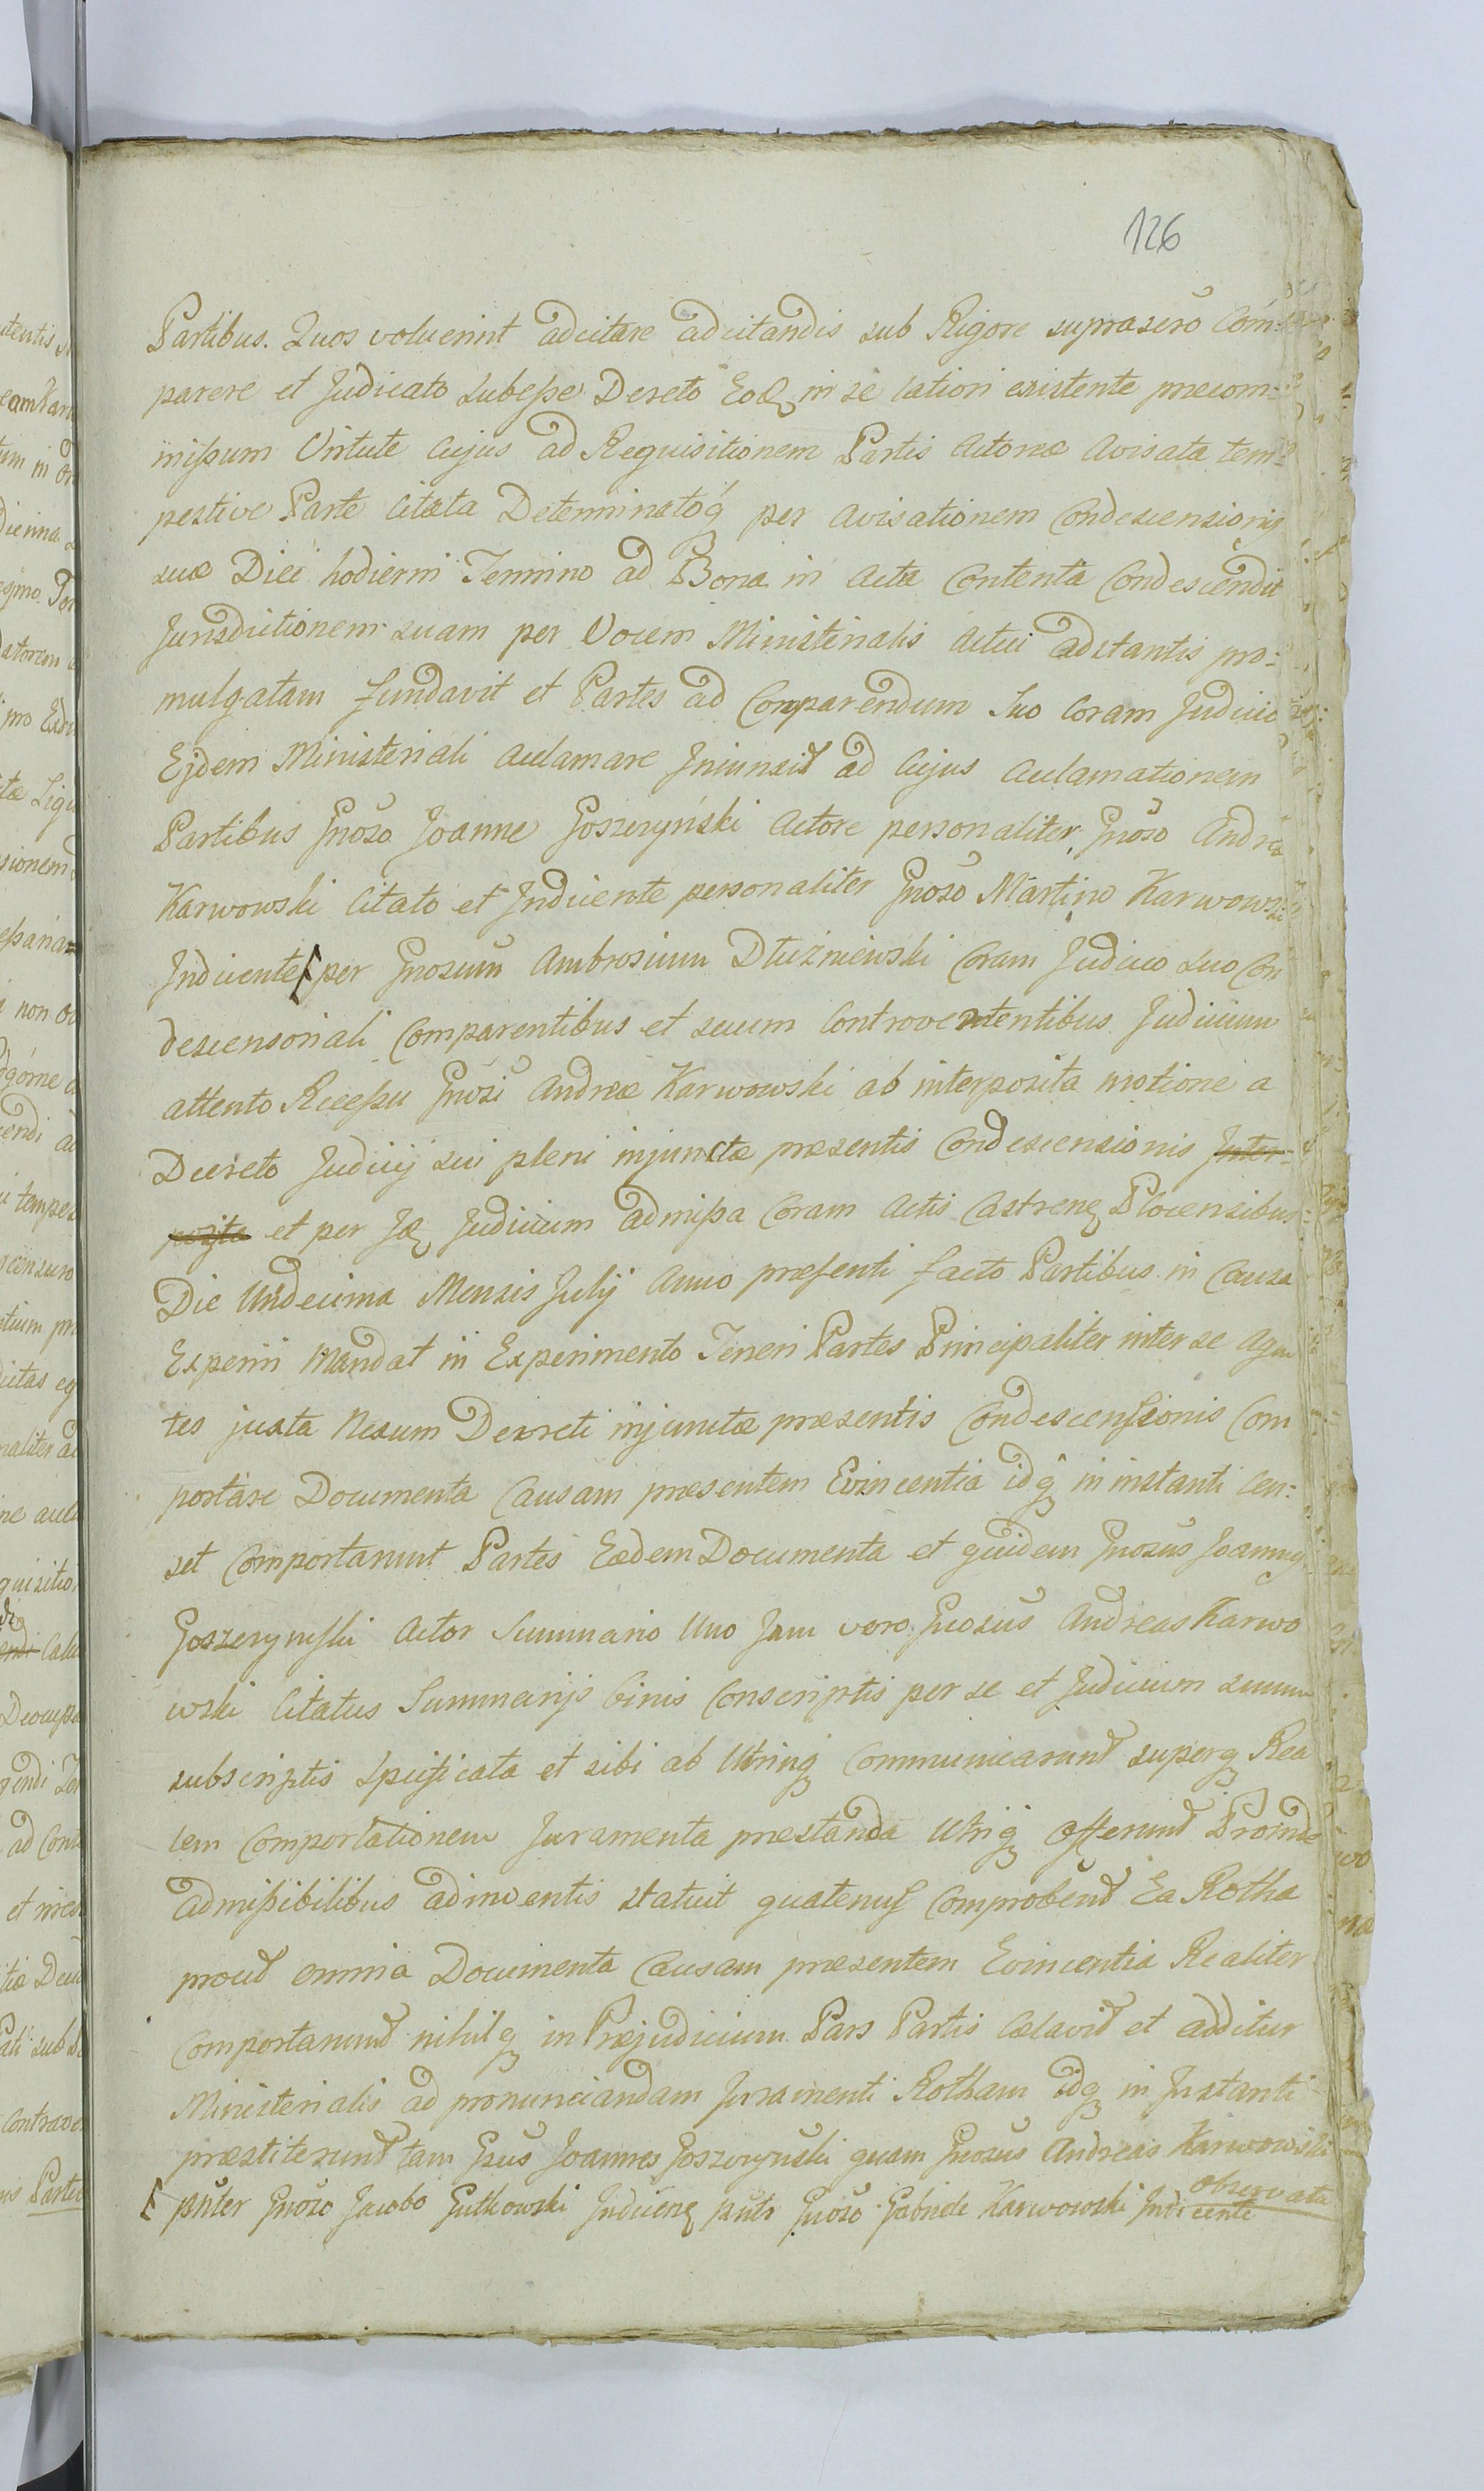 126
Partibus. Quos voluerint adcitare adcitandis sub Rigore suprascr̃o Com:
parere et Judicato subesse Decreto Eoq, in se latiori existente præcom:
missum Virtute Cujus ad Requisitionem Partis Actoreæ Avisata tem:
pestive Parte Citata Determinatoq́ per Avisationem Condescensionis
suæ Diei hodierni Termino ad Bona in Acta Contenta Condescendit
Jurisdictionem suam per Vocem Ministerialis Actui adstantis pro:
mulgatam fundavit et Partes ad Comparendum Suo Coram Judicio
Ejdem Ministeriali Aclamare Injunxit ad Cujus Aclamationem
Partibus Gnõso Joanne Goszczyński Actore personaliter, Gnõso Andrea
Karwowski Citato et Inducente personaliter Gnõso Martino Karwowski
Inducente [ per Gnosum Ambrosium Dłużniewski Coram Judicio suo Con
descensoriali Comparentibus et secum Controvertentibus Judicium
attento Recessu Gnõsi Andreæ Karwowski ab interposita motione a
Decreto Judicij sui pleni injunctæ præsentis Condescensionis Inter:
posita et per Id, Judicium admissa Coram Actis Castren, Plocensibus
Die Undecima Mensis Julij Anno præsenti facto Partibus in Causa
Experiri Mandat in Experimento Teneri Partes Principaliter inter se Agen
tes juxta Nexum Decreti injunctæ præsentis Condescensionis Com
portare Documenta Causam præsentem Evincentia idq́ in instanti Cen:
set Comportarunt Partes Eædem Documenta et quidem Gnosus Joannes
Goszczynski Actor Summario Uno Jam vero Gnosus Andreas Karwo
wski Citatus Summarijs binis Conscriptis per se et Judicium suum
subscriptis specificata et sibi ab Utrinq́ Communicarunt superq́ Rea
lem Comportationem Juramenta præstanda Utriq́ Offerunt Proinde
admissibilibus adinventis statuit quatenus Comprobent Ea Rotha
prout omnia Documenta Causam præsentem Evincentia Realiter
Comportarunt nihilq́ in Præjudicium Pars Partis Cælavit et additur
Ministerialis ad pronunciandam Juramenti Rotham idq́ in Instanti
præstiterunt tam Gsus Joannes Goszczynski quam Gnosus Andreas Karwowski
observata
[ pñter Gnõso Jacobo Gutkowski Inducen, pñtr Gnõso Gabriele Karwowski Inducente